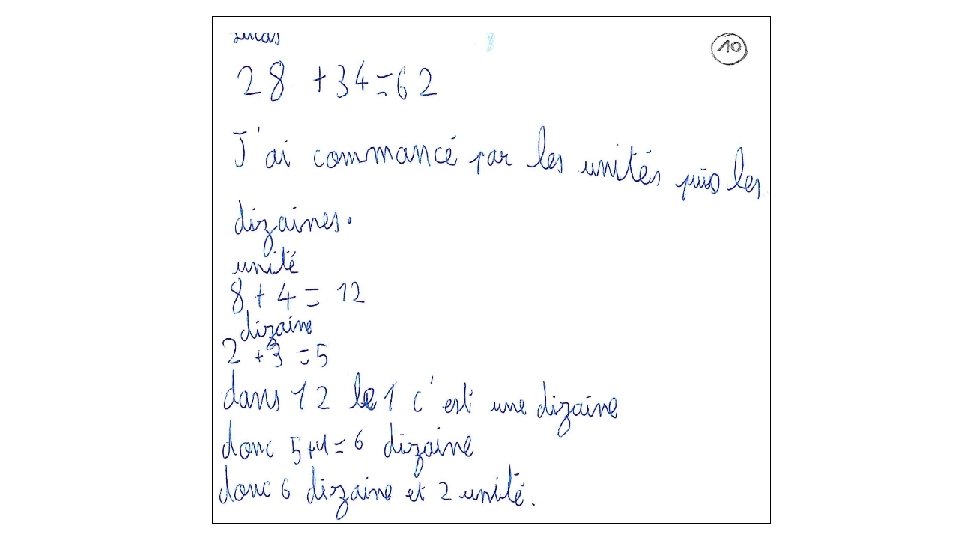 10
28 +34=62
J'ai commancé par les unités puis les
dizaines.
unité
8 + 4 = 12
dizaine
2 + 3 = 5
dans 12 le 1 c'est une dizaine
donc 5+1=6 dizaine
donc 6 dizaine et 2 unité.